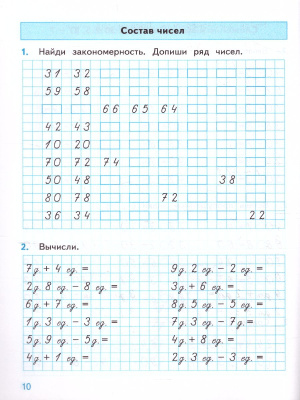 Состав чисел
1. Найди закономерность. Допиши ряд чисел.
31 32
59 58
66 65 64
42 43
10 20
70 72 74
50 48 38
80 78 72
36 34 22
2. Вычисли.
7д. + 4 ед. = 9д. 2 ед. - 2 ед. =
2д. 8 ед. - 8 ед. = 3д. + 6 ед. =
6д. + 7 ед. = 8д. 5 ед. - 5 ед. =
1д. 3 ед. - 3 ед. = 7д. 3 ед. - 7д. =
5д. 9 ед. - 5д. = 4д. + 8 ед. =
4д. + 1 ед. = 2д. 3 ед. - 3 ед. =
10